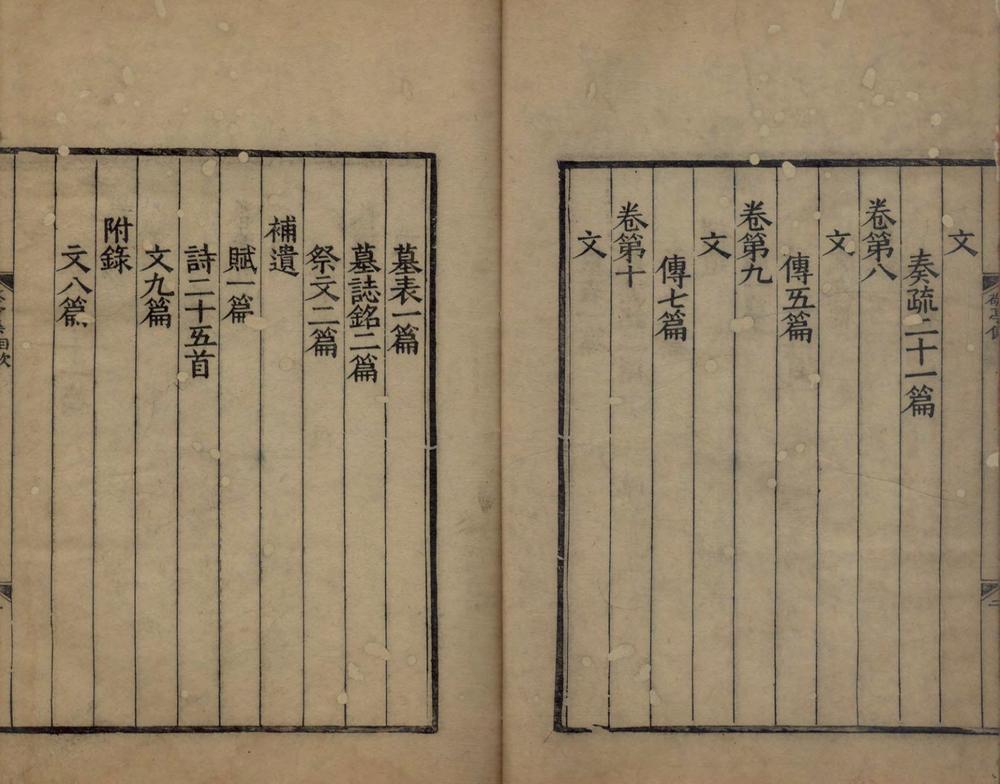 文
奏疏二十一篇
卷第八
文
傳五篇
卷第九
文
傳七篇
卷第十
文
墓表一篇
墓誌銘二篇
祭文二篇
補遺
賦一篇
詩二十五首
文九篇
附錄
文八篇